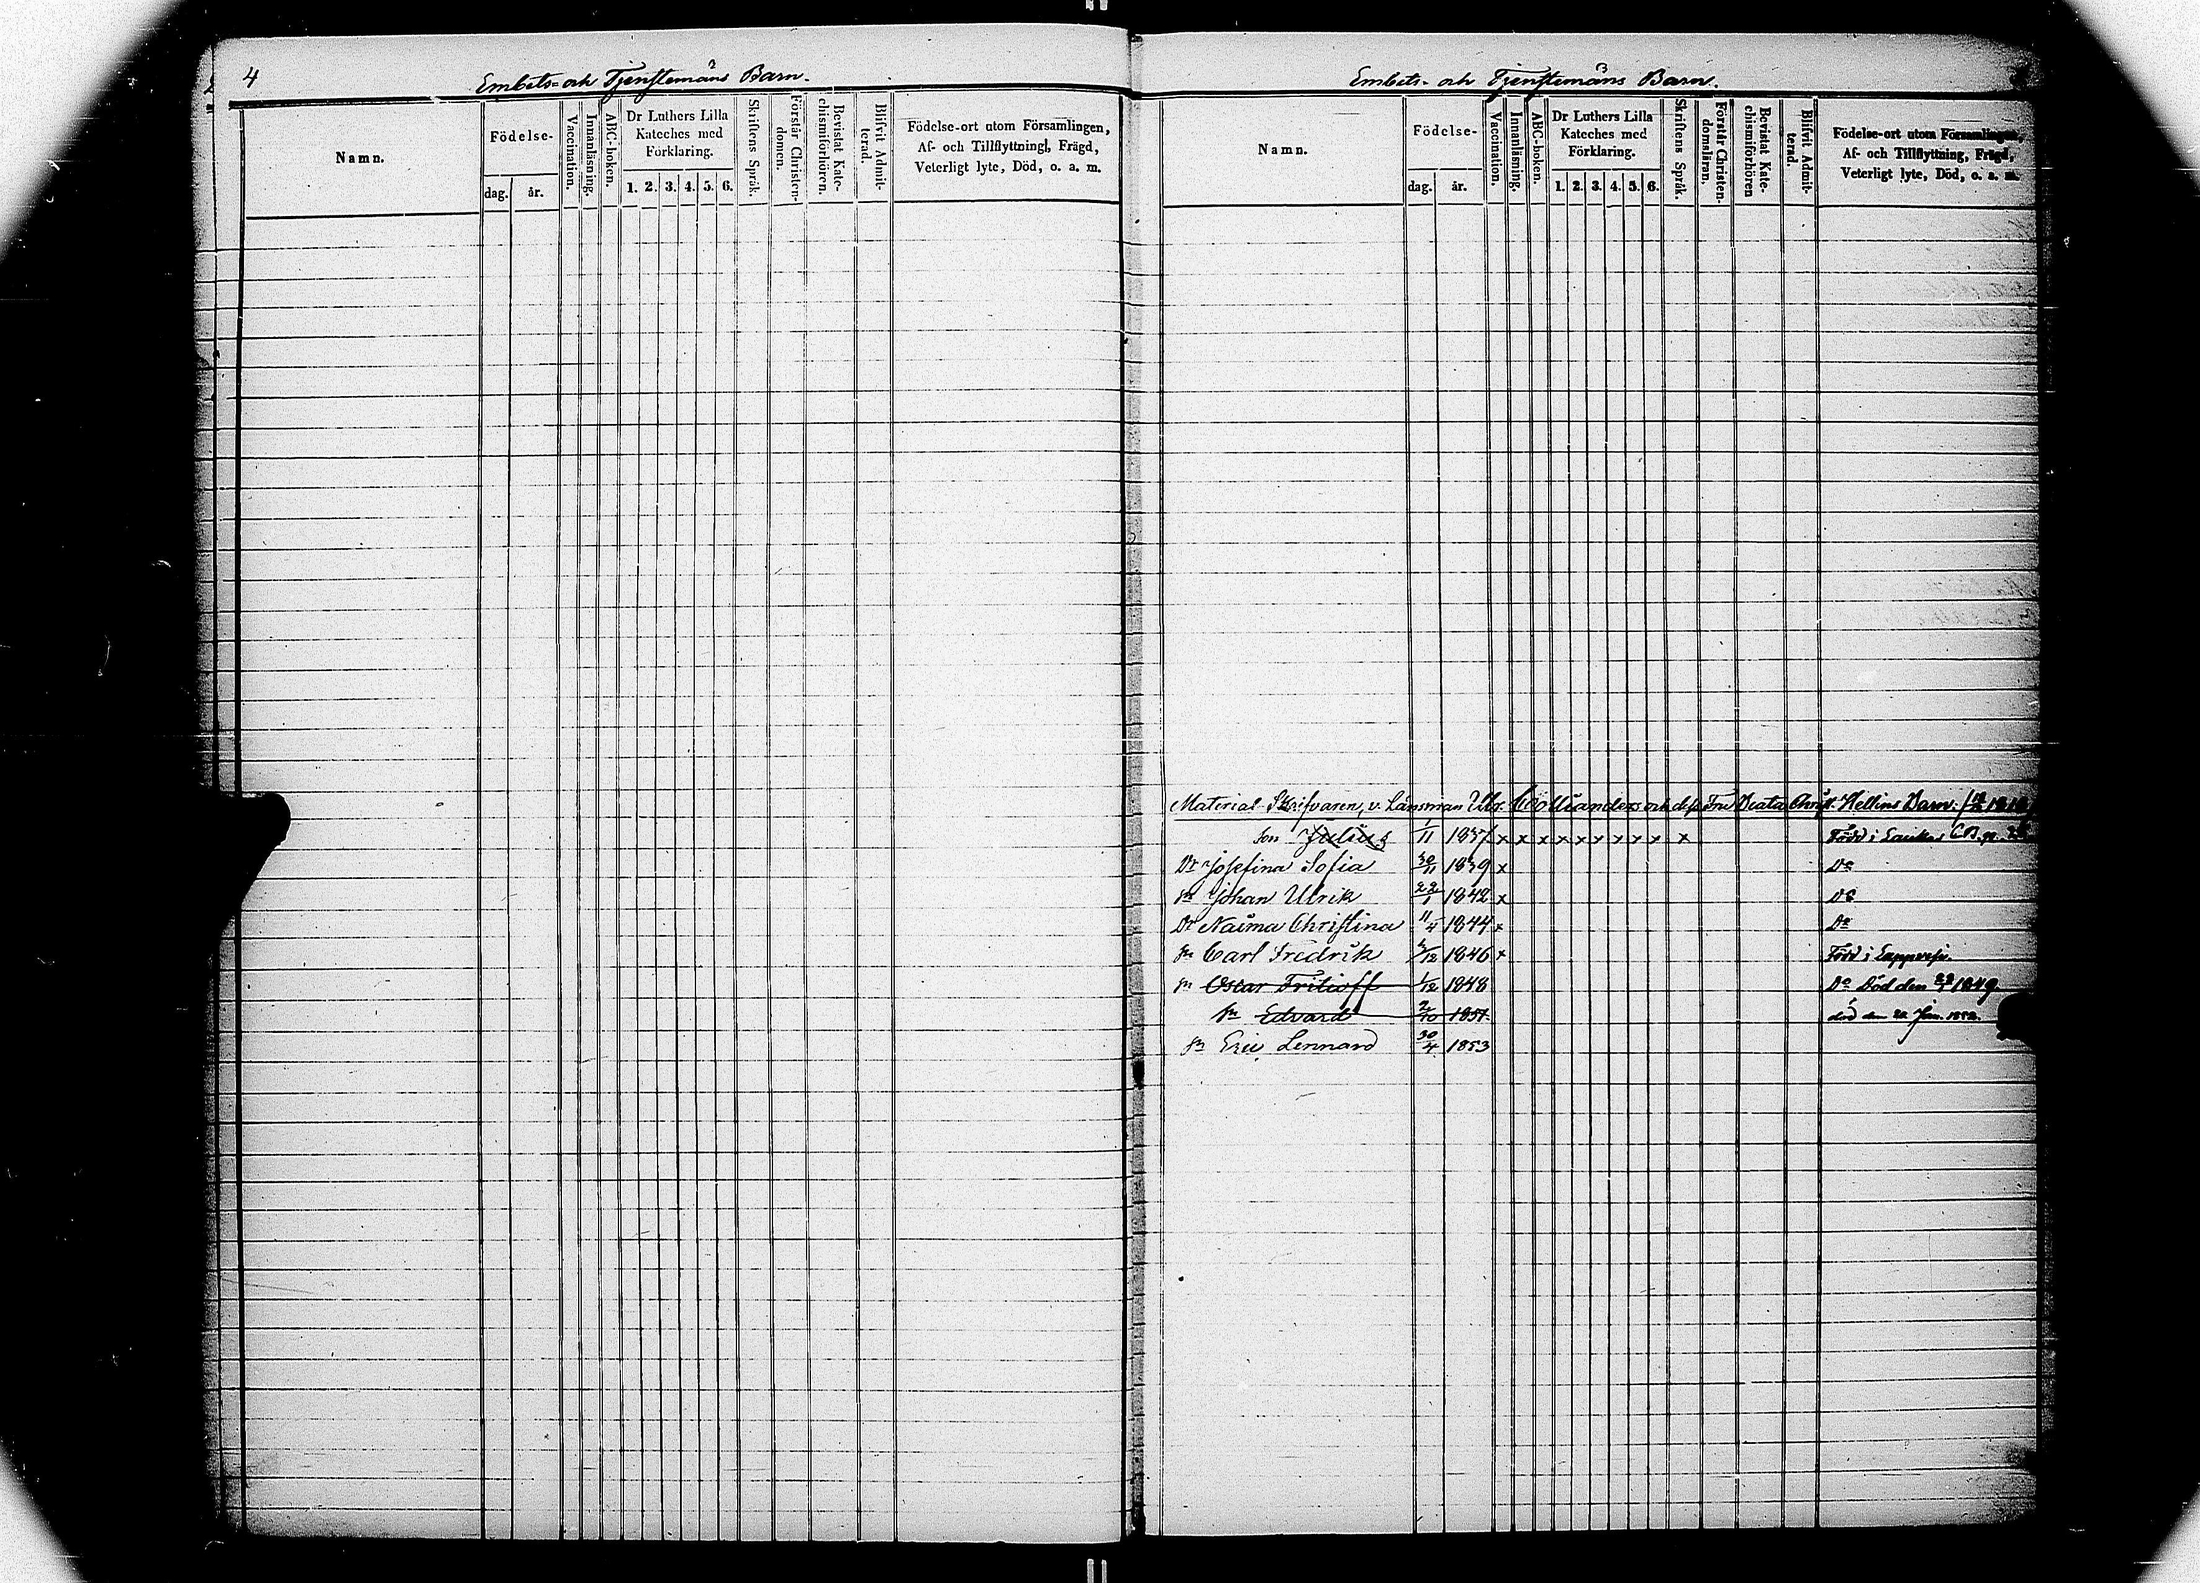 4
Embets- och Tjenstemäns Barn.
Namn.
Födelse-
dag. år.
Vaccination.
Innanläsning.
ABC-boken.
Dr Luthers Lilla
Kateches med
Förklaring.
1. 2. 3. 4. 5. 6.
Skriftens Språk.
Förstår Christen-
domen.
Bevistat Kate-
chismiförhören.
Blifvit Admit-
terad.
Födelse-ort utom Församlingen,
Af- och Tillflyttningl, Frägd,
Veterligt lyte, Död, o. a. m.
Embets- och Tjenstemäns Barn.
Namn.
Födelse-
dag. år.
Vaccination.
Innanläsning.
ABC-boken.
Dr Luthers Lilla
Kateches med
Förklaring.
1. 2. 3. 4. 5. 6.
Skriftens Språk.
Förstår Christen-
domsläran.
Bevistat Kate-
chismiförhören
Blifvit Admit-
terad.
Födelse-ort utom Församlingen,
Af- och Tillflyttning, Frägd,
Veterligt lyte, Död, o. a. m.
Material-Skrifvaren, v. Länsman Ulr. Colliander och dess Fru Beata Christ. Hellins Barn.
Son Julius 1/11 1837 x x x x x x x x x x Född i Laukas CB. p.
Dr Josefina Sofia 30/11 1839 x Do
Sn Johan Ulrik 22/1 1842 x Do
Dr Naima Christina 11/4 1844 x Do
Sn Carl Fredrik /12 1846 x Född i Lappvesi.
Sn Oscar Fritioff 1/12 1848 Do Död den 1849.
Sn Edvard 2/10 1851. död den 22 Jan. 1852.
Sn Eric Lennard 30/4 1853